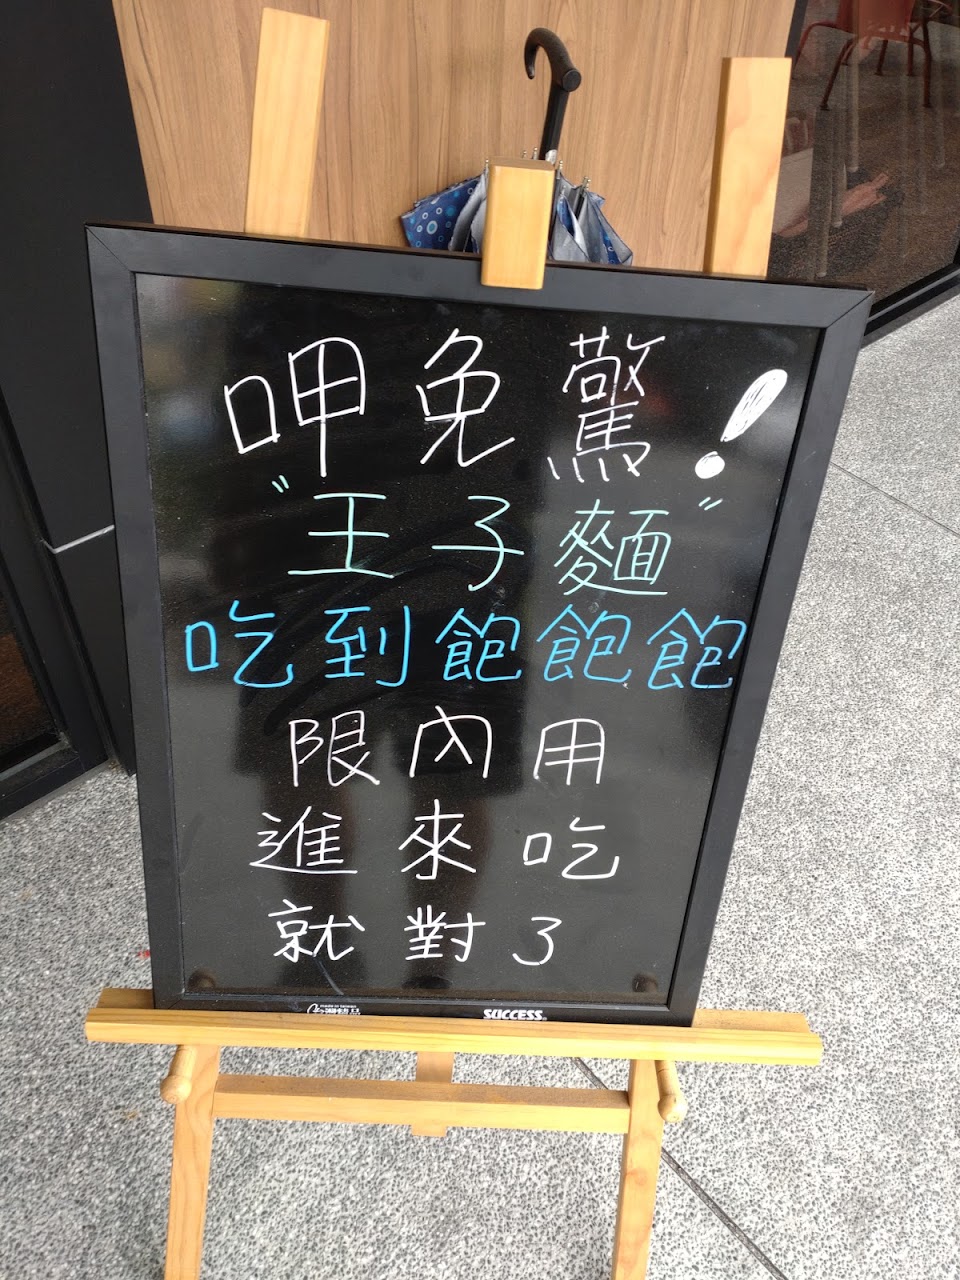 呷免驚!
"王子麵"
吃到飽飽飽
限內用
進來吃
就對了
SUCCESS